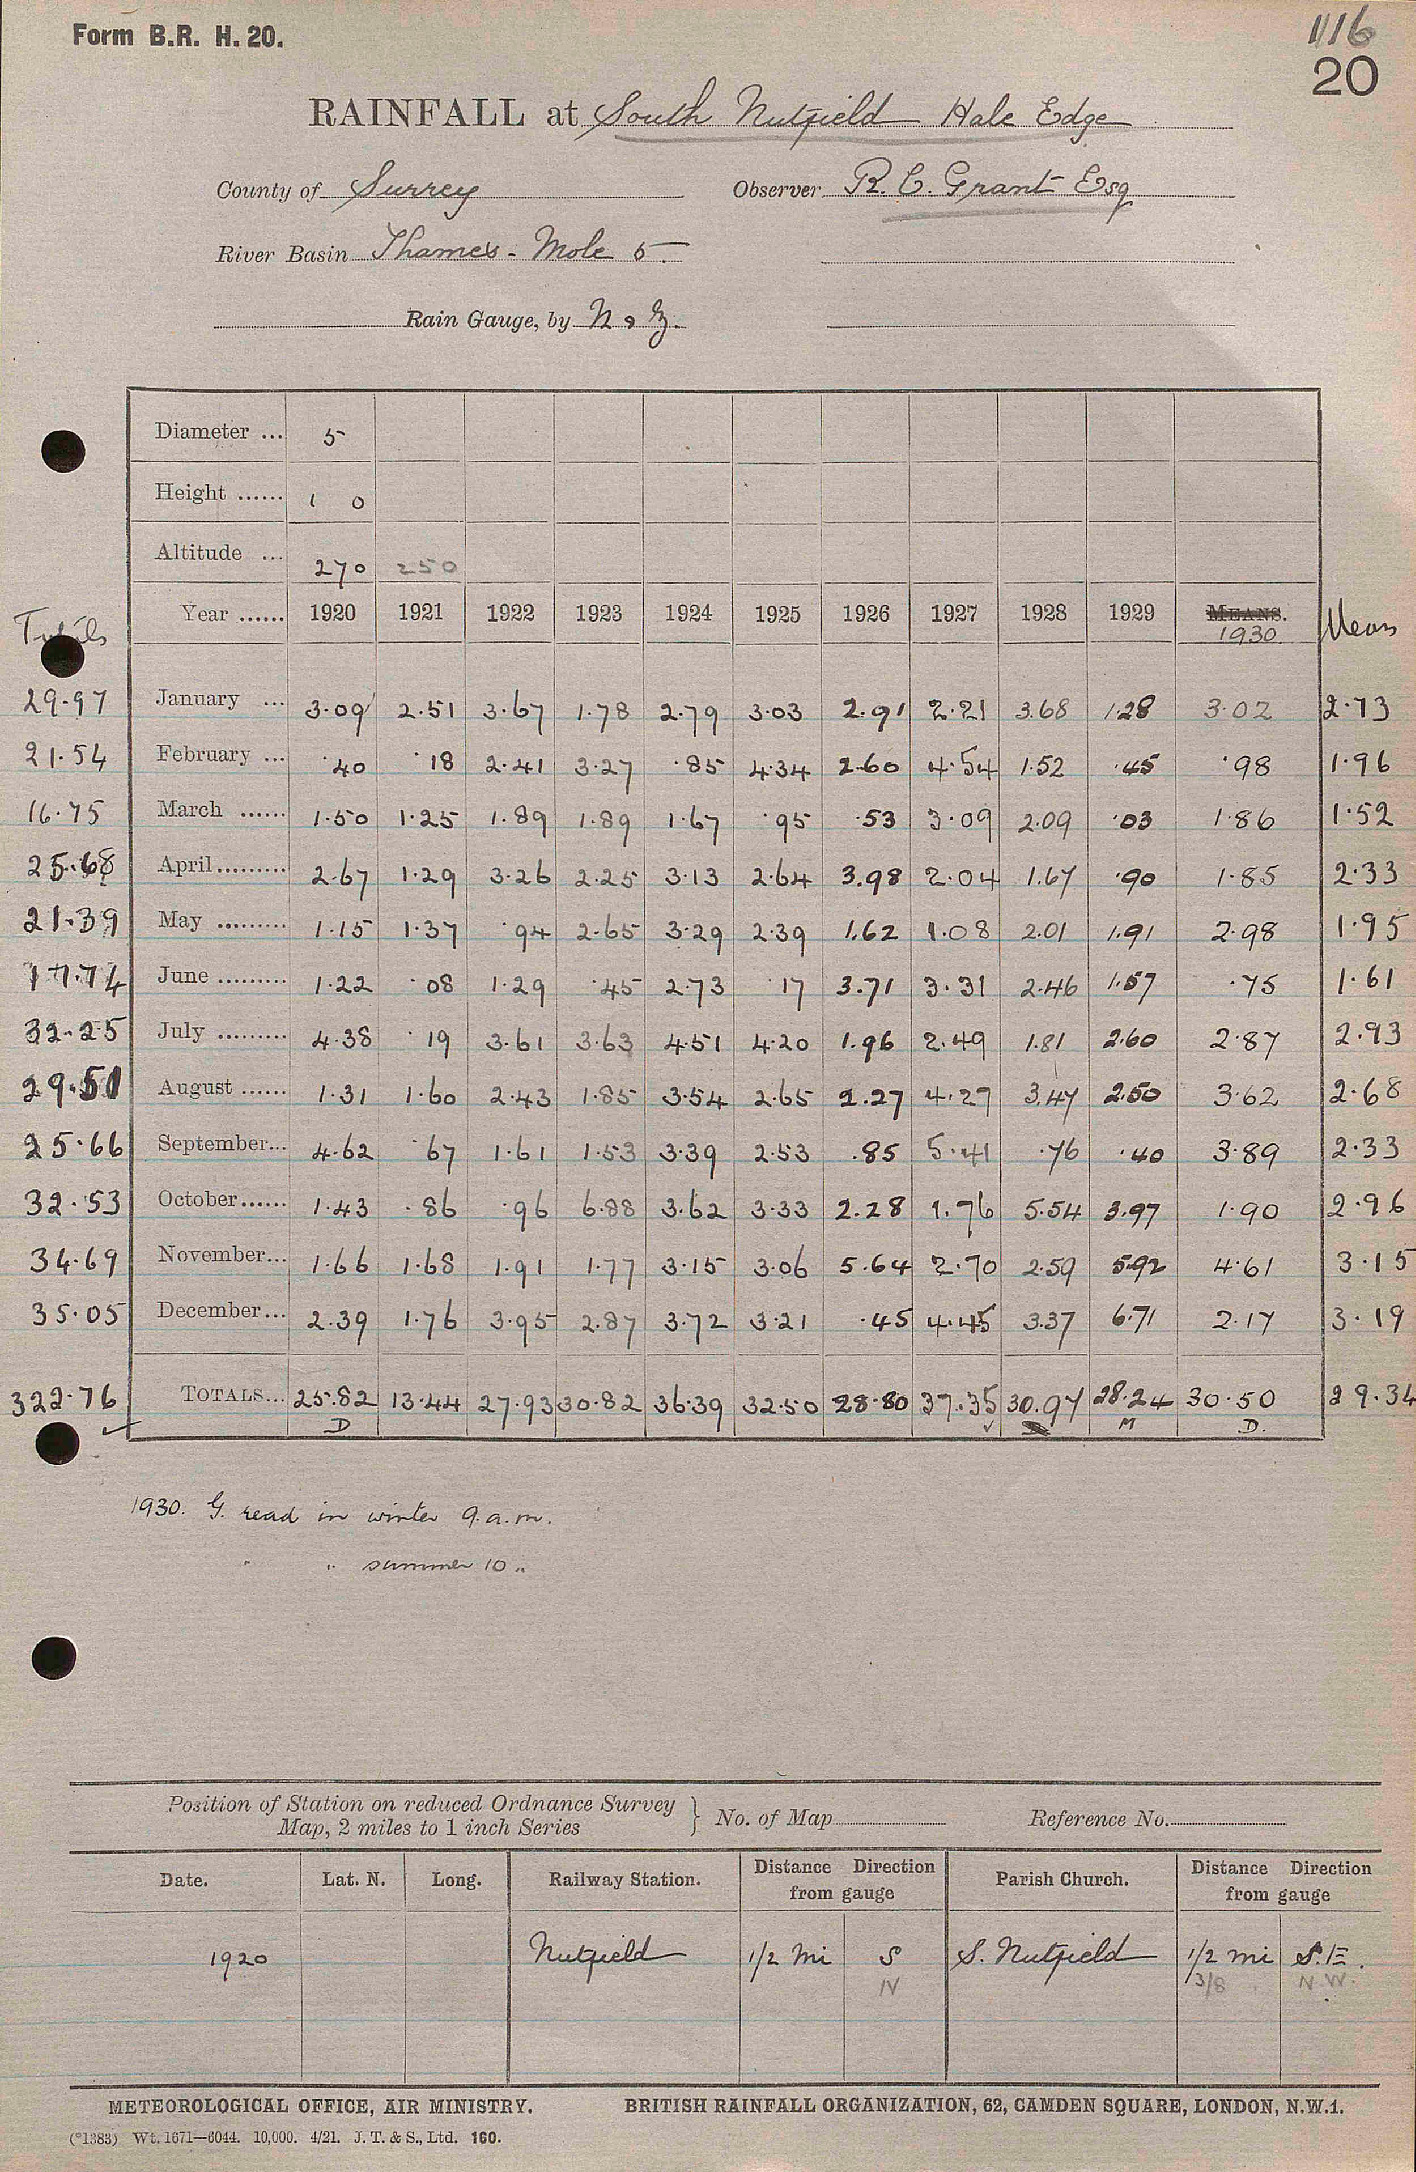 Form B.R. H. 20.
1116
20
RAINFALL at South Nutfield Hale Edge
County of Surrey Observer R. C. Grant Esq
River Basin Thames - Mole 5.
Rain Gauge, by N & Z.
Diameter ... 5
Height ...... 1 0
Altitude ... 270 250
Totals Year ...... 1920 1921 1922 1923 1924 1925 1926 1927 1928 1929 MEANS. 1930 Mean
29.97 January ... 3.09 2.51 3.67 1.78 2.79 3.03 2.91 2.21 3.68 1.28 3.02 2.73
21.54 February ... .40 .18 2.41 3.27 .85 4.34 2.60 4.54 1.52 .45 .98 1.96
16.75 March ...... 1.50 1.25 1.89 1.89 1.67 .95 .53 3.09 2.09 .03 1.86 1.52
25.68 April......... 2.67 1.29 3.26 2.25 3.13 2.64 3.98 2.04 1.67 .90 1.85 2.33
21.39 May ......... 1.15 1.37 .94 2.65 3.29 2.39 1.62 1.08 2.01 1.91 2.98 1.95
17.74 June ......... 1.22 .08 1.29 .45 2.73 .17 3.71 3.31 2.46 1.57 .75 1.61
32.25 July ......... 4.38 .19 3.61 3.63 4.51 4.20 1.96 2.49 1.81 2.60 2.87 2.93
29.51 August ...... 1.31 1.60 2.43 1.85 3.54 2.65 2.27 4.27 3.47 2.50 3.62 2.68
25.66 September... 4.62 .67 1.61 1.53 3.39 2.53 .85 5.41 .76 .40 3.89 2.33
32.53 October...... 1.43 .86 .96 6.88 3.62 3.33 2.28 1.76 5.54 3.97 1.90 2.96
34.69 November... 1.66 1.68 1.91 1.77 3.15 3.06 5.64 2.70 2.59 5.92 4.61 3.15
35.05 December... 2.39 1.76 3.95 2.87 3.72 3.21 .45 4.45 3.37 6.71 2.17 3.19
322.76 TOTALS... 25.82 13.44 27.93 30.82 36.39 32.50 28.80 37.35 30.97 28.24 30.50 29.34
D M D.
1930. G. read in winter 9.a.m.
" " summer 10 "
Position of Station on reduced Ordnance Survey
Map, 2 miles to 1 inch Series } No. of Map Reference No.
Date. Lat. N. Long. Railway Station. Distance Direction from gauge Parish Church. Distance Direction from gauge
1920 Nutfield 1/2 mi S S. Nutfield 1/2 mi S.E.
N 3/8 N.W.
METEOROLOGICAL OFFICE, AIR MINISTRY. BRITISH RAINFALL ORGANIZATION, 62, CAMDEN SQUARE, LONDON, N.W.1.
(*1383) Wt. 1671—6044. 10,000. 4/21. J. T. & S., Ltd. 160.